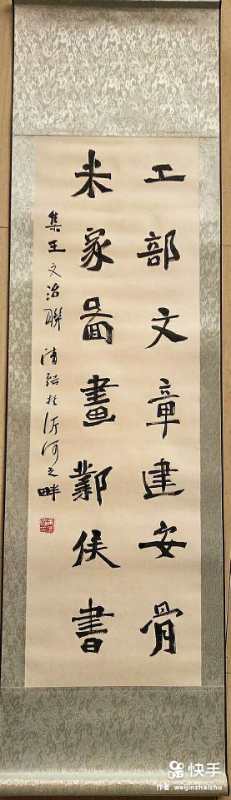 工部文章建安骨
米家图畫鄴侯書
集王文治聯 清銘於沂河之畔
快手
作者：weiqinzhaishu